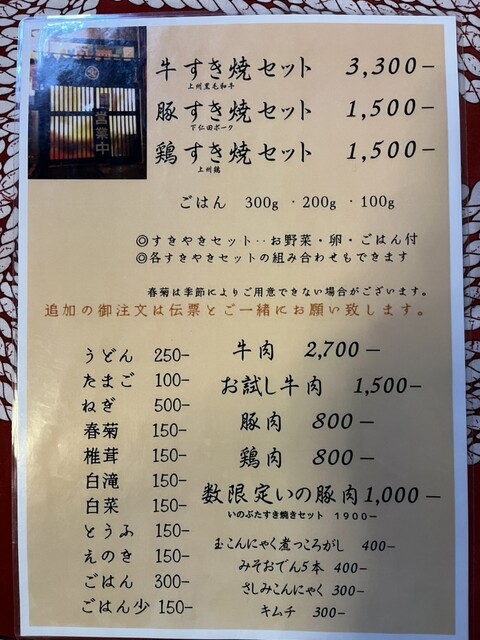 営業中
牛すき焼セット 3,300-
上州黒毛和牛
豚すき焼セット 1,500-
下仁田ポーク
鶏すき焼セット 1,500-
上州鶏
ごはん 300g ・200g ・100g
◎すきやきセット‥お野菜・卵・ごはん付
◎各すきやきセットの組み合わせもできます
春菊は季節によりご用意できない場合がございます。
追加の御注文は伝票とご一緒にお願い致します。
うどん 250-
たまご 100-
ねぎ 500-
春菊 150-
椎茸 150-
白滝 150-
白菜 150-
とうふ 150-
えのき 150-
ごはん 300-
ごはん少 150-
牛肉 2,700-
お試し牛肉 1,500-
豚肉 800-
鶏肉 800-
数限定いの豚肉 1,000-
いのぶたすき焼きセット 1900-
玉こんにゃく煮っころがし 400-
みそおでん5本 400-
さしみこんにゃく 300-
キムチ 300-